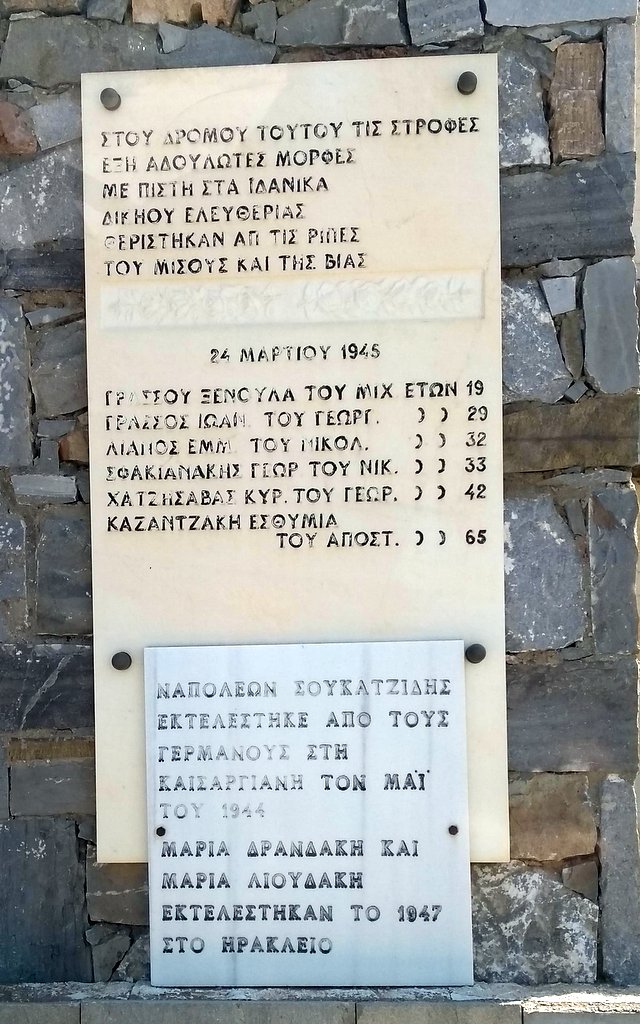 ΣΤΟΥ ΔΡΟΜΟΥ ΤΟΥΤΟΥ ΤΙΣ ΣΤΡΟΦΕΣ
ΕΞΗ ΑΔΟΥΛΩΤΕΣ ΜΟΡΦΕΣ
ΜΕ ΠΙΣΤΗ ΣΤΑ ΪΔΑΝΙΚΑ
ΔΙΚΗΟΥ ΕΛΕΥΘΕΡΙΑΣ
ΘΕΡΙΣΤΗΚΑΝ ΑΠ ΤΙΣ ΡΙΠΕΣ
ΤΟΥ ΜΙΣΟΥΣ ΚΑΙ ΤΗΣ ΒΙΑΣ
24 ΜΑΡΤΙΟΥ 1945
ΓΡΑΣΣΟΥ ΞΕΝΟΥΛΑ ΤΟΥ ΜΙΧ ΕΤΩΝ 19
ΓΡΑΣΣΟΣ ΙΩΑΝ. ΤΟΥ ΓΕΩΡΓ. ) ) 29
ΛΙΑΠΟΣ ΕΜΜ. ΤΟΥ ΝΙΚΟΛ. ) ) 32
ΣΦΑΚΙΑΝΑΚΗΣ ΓΕΩΡ ΤΟΥ ΝΙΚ. ) ) 33
ΧΑΤΖΗΣΑΒΑΣ ΚΥΡ. ΤΟΥ ΓΕΩΡ. ) ) 42
ΚΑΖΑΝΤΖΑΚΗ ΕΣΘΥΜΙΑ
ΤΟΥ ΑΠΟΣΤ. ) ) 65
ΝΑΠΟΛΕΩΝ ΣΟΥΚΑΤΖΙΔΗΣ
ΕΚΤΕΛΕΣΤΗΚΕ ΑΠΟ ΤΟΥΣ
ΓΕΡΜΑΝΟΥΣ ΣΤΗ
ΚΑΙΣΑΡΓΙΑΝΗ ΤΟΝ ΜΑΪ
ΤΟΥ 1944
ΜΑΡΙΑ ΔΡΑΝΔΑΚΗ ΚΑΙ
ΜΑΡΙΑ ΛΙΟΥΔΑΚΗ
ΕΚΤΕΛΕΣΤΗΚΑΝ ΤΟ 1947
ΣΤΟ ΗΡΑΚΛΕΙΟ